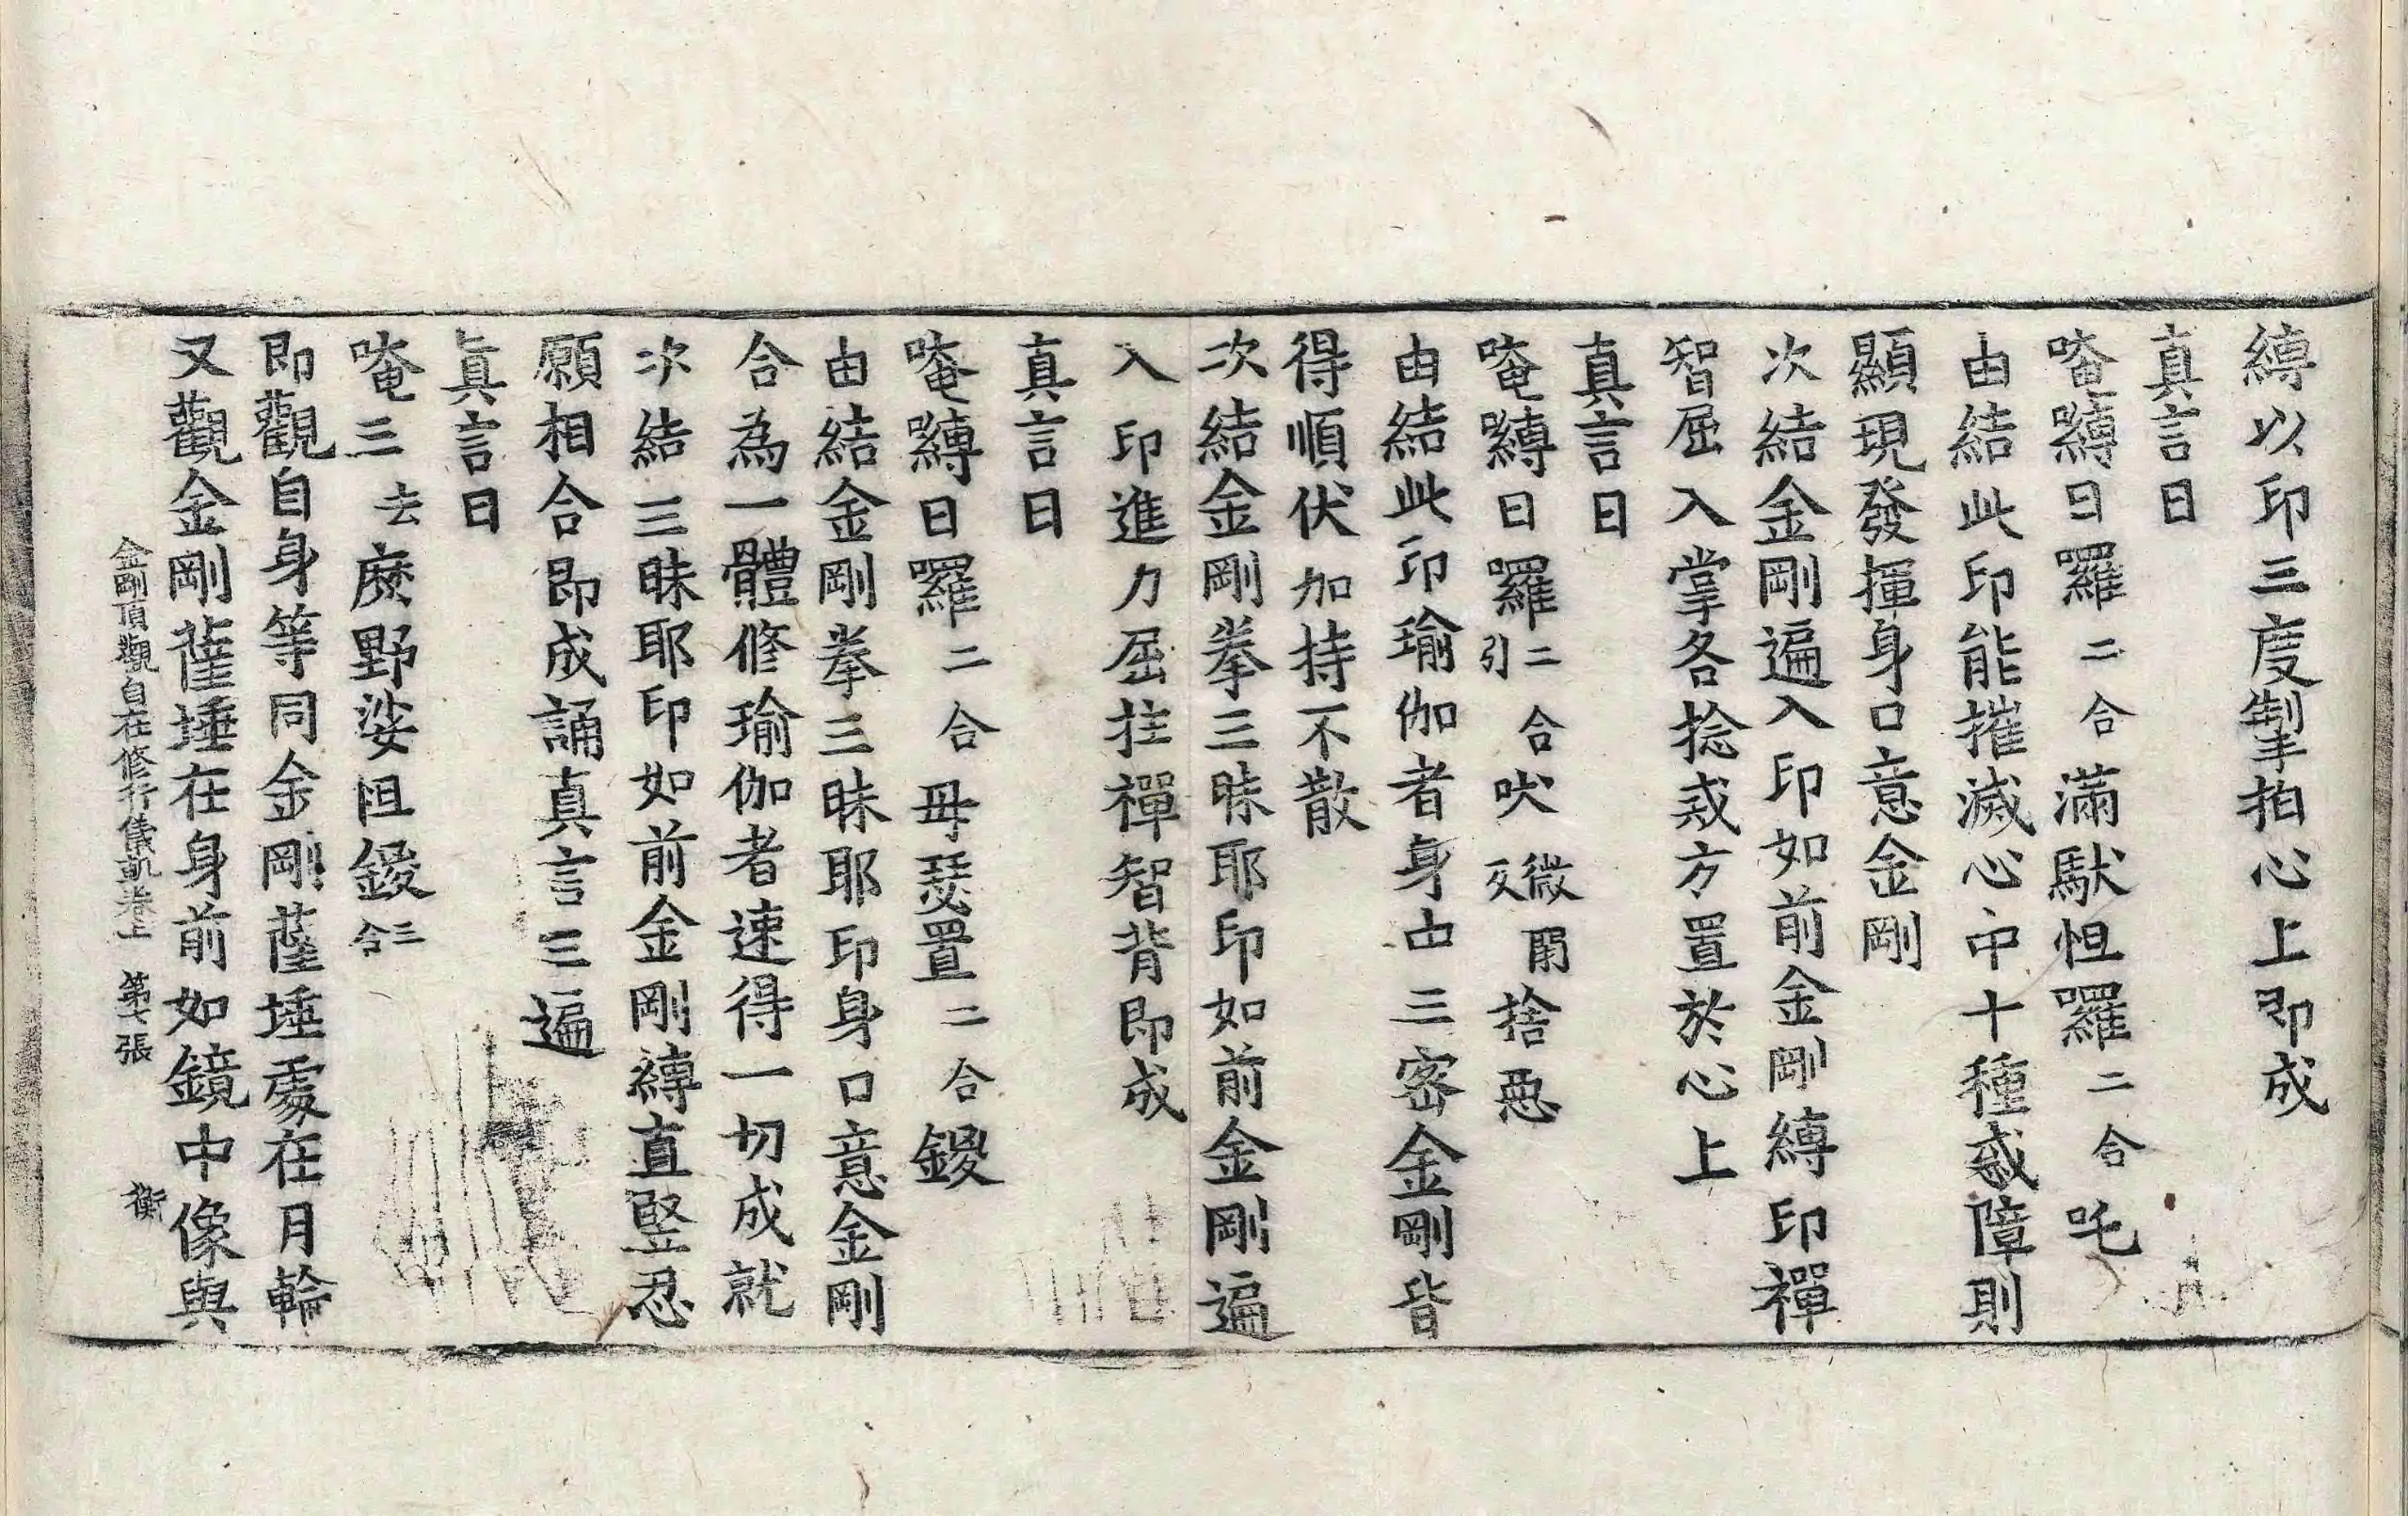 縛以印三度掣拍心上即成
真言曰
唵嚩日羅二合滿馱怛羅二合吒
由結此印能摧滅心中十種惑障則
顯現發揮身口意金剛
次結金剛遍入印如前金剛縛印禪
智屈入掌各捻戒方置於心上
真言曰
唵嚩日羅二合引吠微閇反捨惡
由結此印瑜伽者身中三密金剛皆
得順伏加持不散
次結金剛拳三昧耶印如前金剛遍
入印進力屈拄禪智背即成
真言曰
唵嚩日羅二合母瑟置二合鑁
由結金剛拳三昧耶印身口意金剛
合為一體修瑜伽者速得一切成就
次結三昧耶印如前金剛縛直竪忍
願相合即成誦真言三遍
真言曰
唵三去麼野娑怛鑁三合
即觀自身等同金剛薩埵處在月輪
又觀金剛薩埵在身前如鏡中像與
金剛頂觀自在修行儀軌卷上 第七張 衡